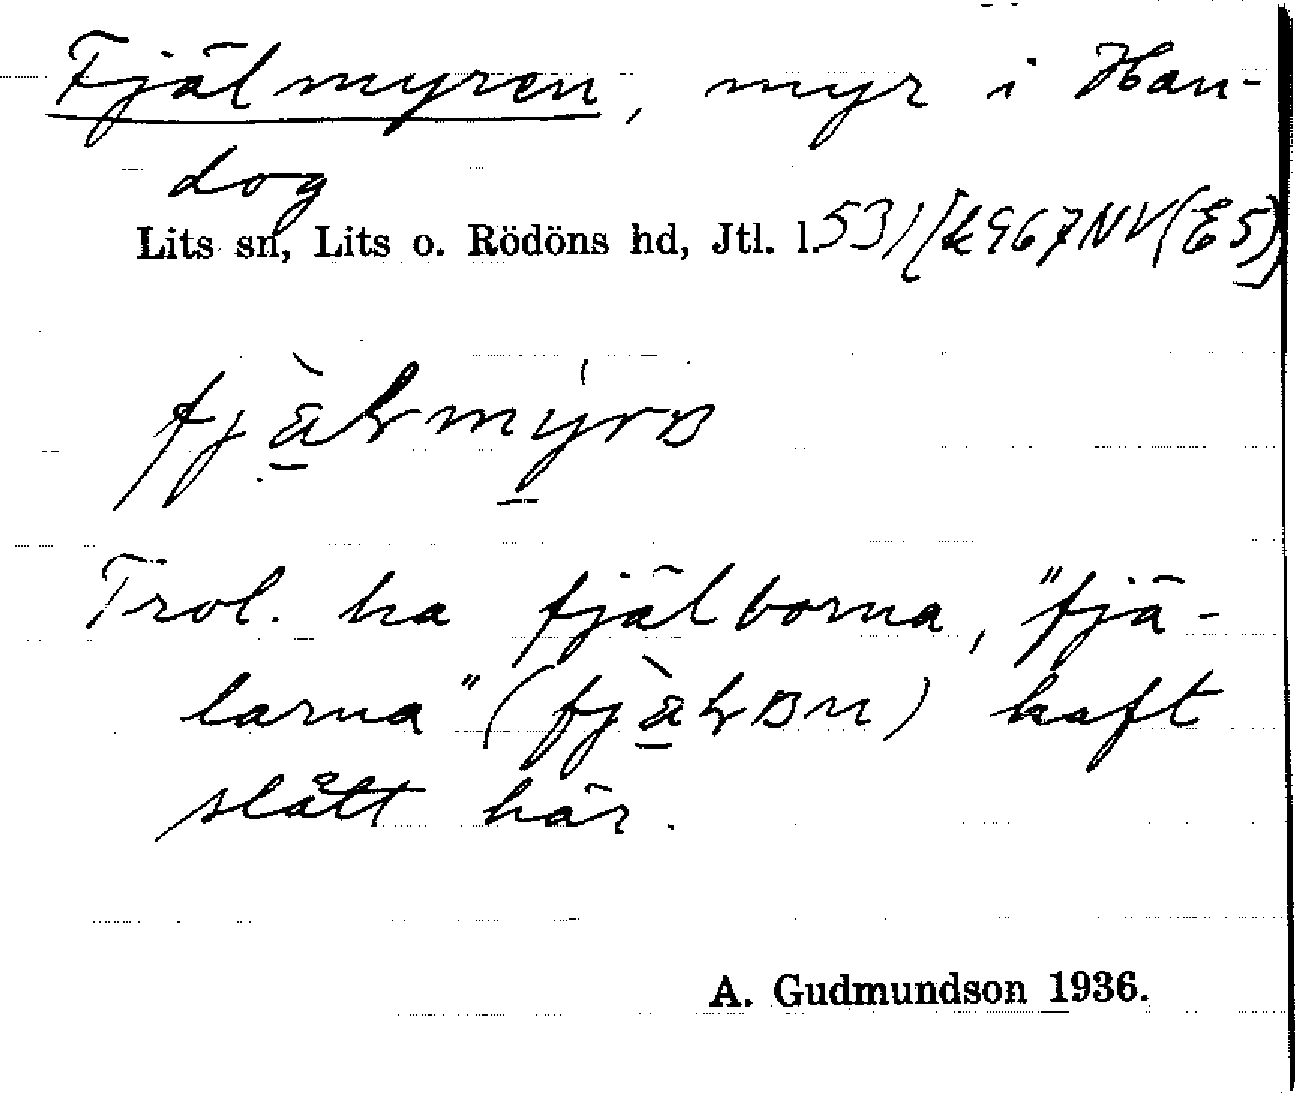 Fjälmyren, myr i Han-
dog
Lits sn, Lits o. Rödöns hd, Jtl. l. 531/[L967NV(E5)
fjä̀lmyrɞ
Trol. ha fjälborna, "fjä-
larna" (fjä̀lɞn) haft
slått här.
A. Gudmundson 1936.